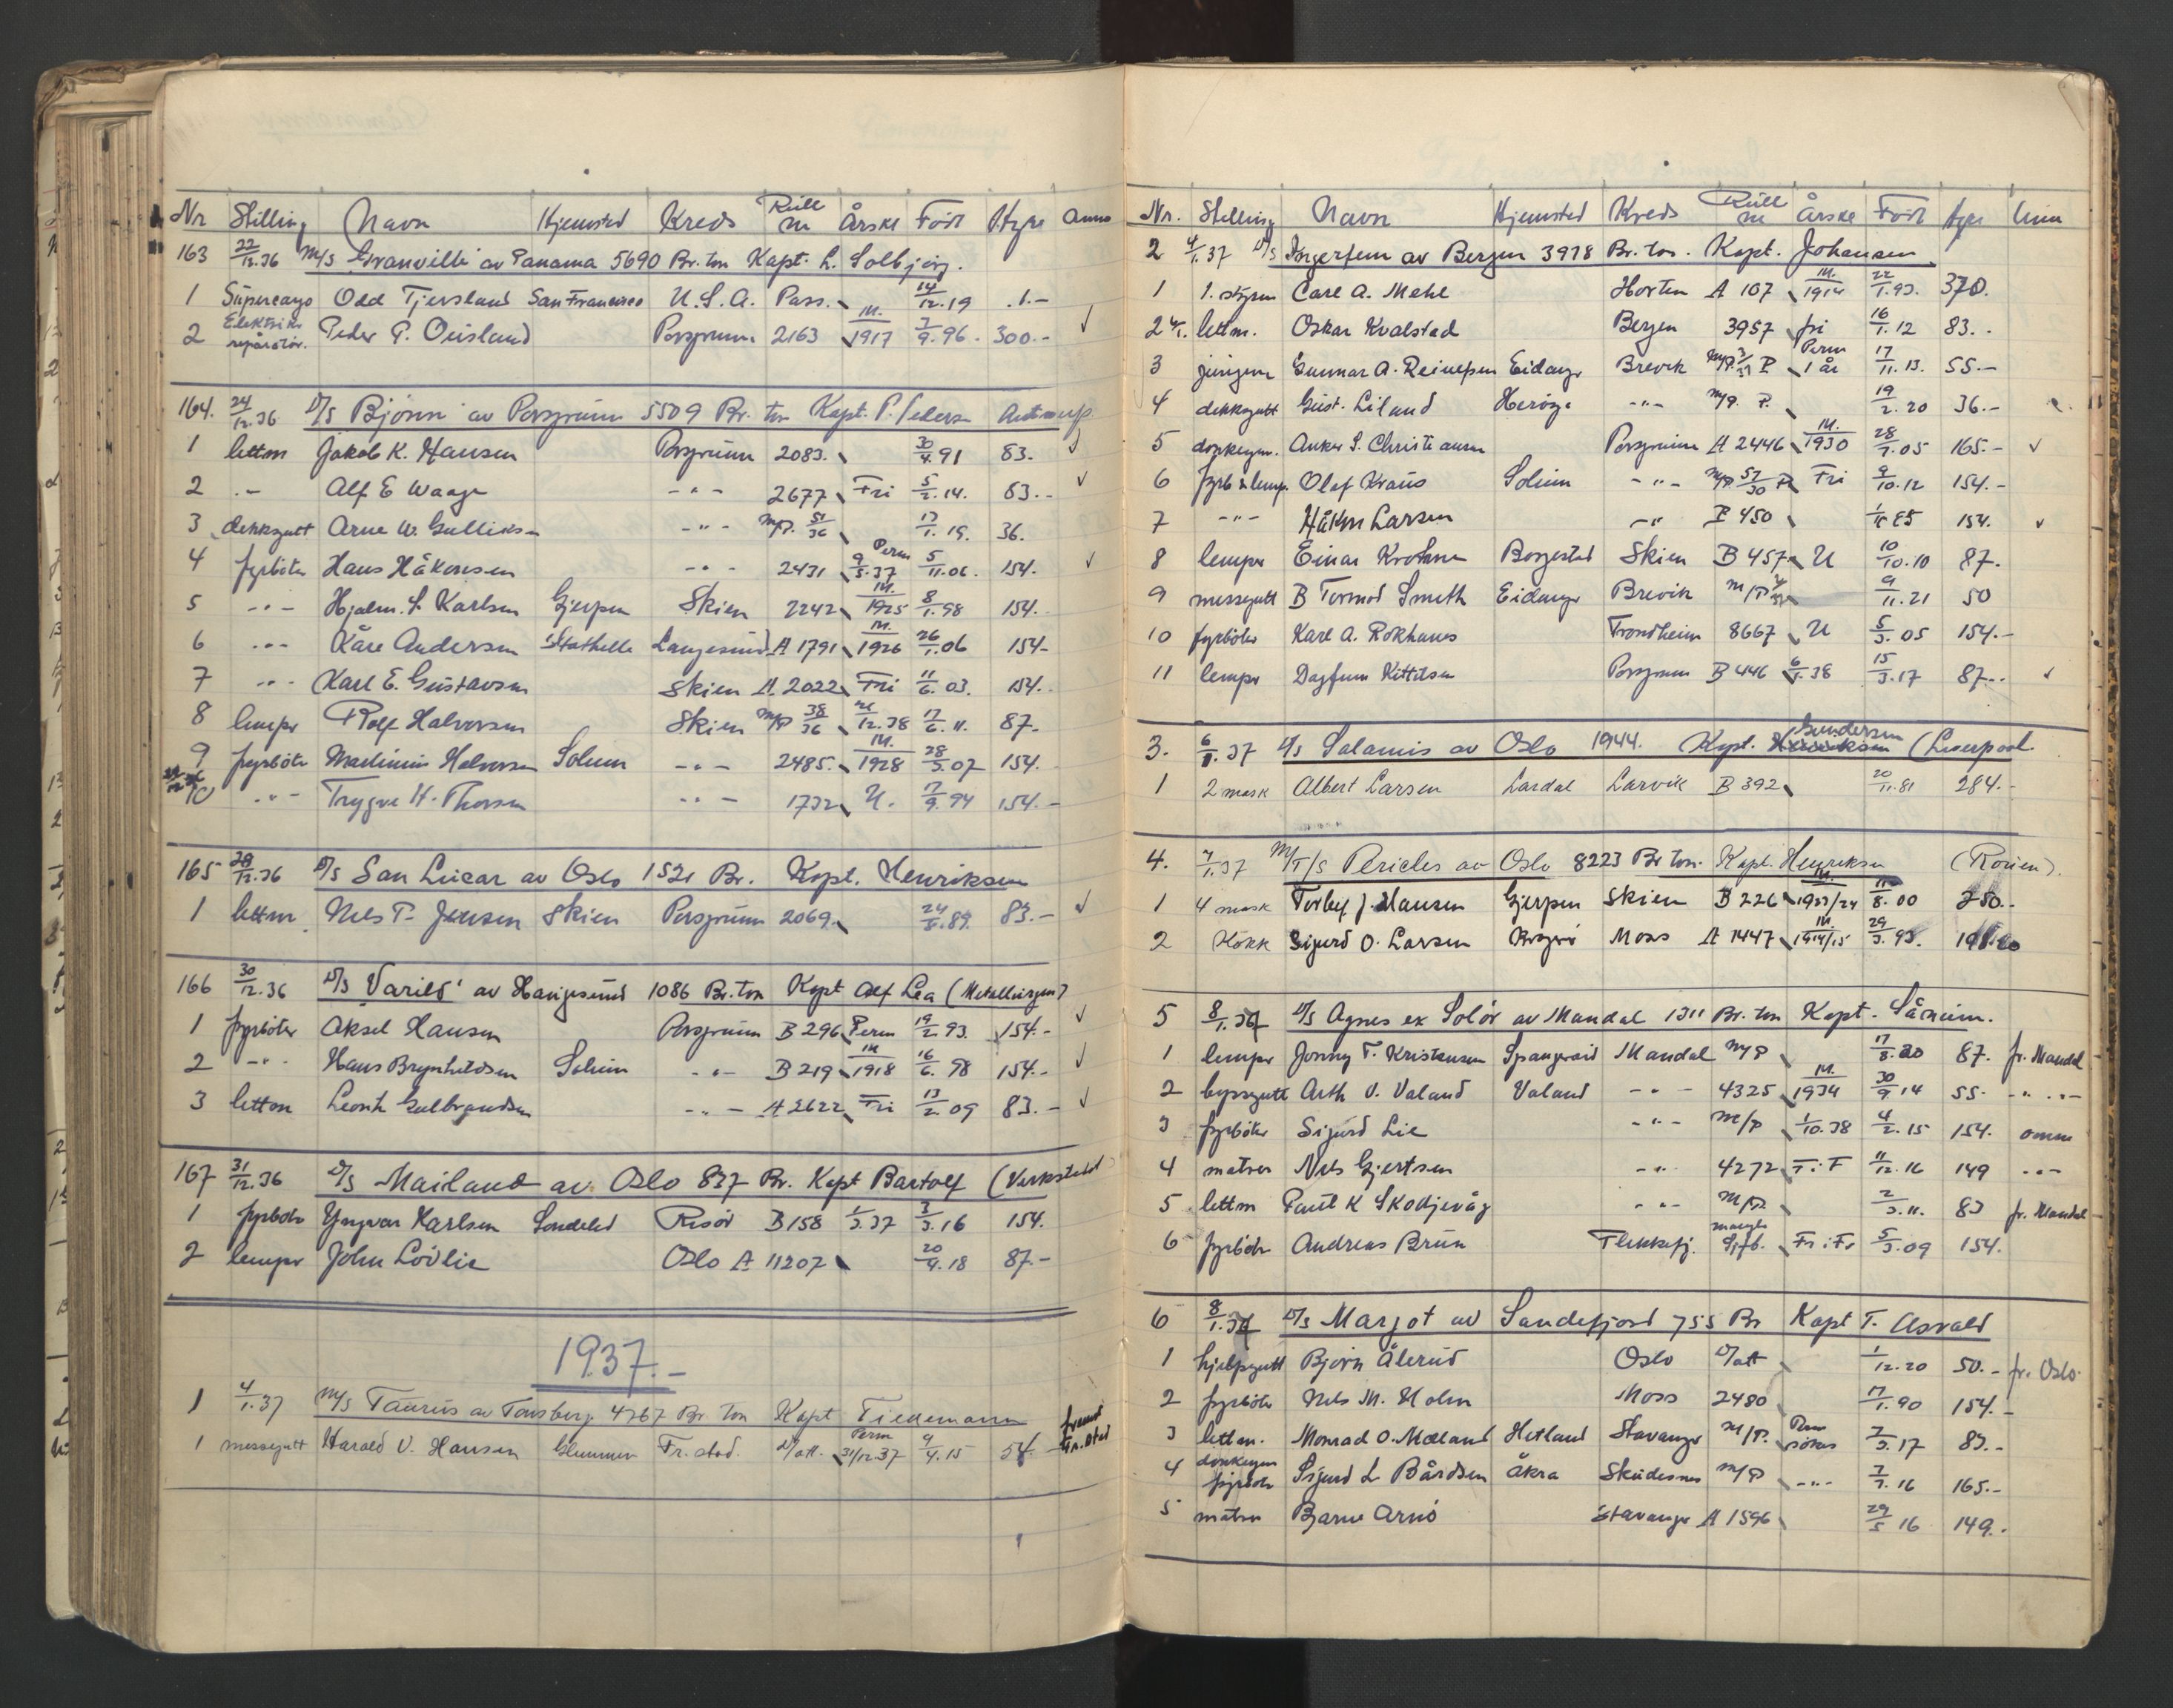 Nr Stilling Navn Hjemsted Kreds Rull nr Årskl Født Hyre Anm
163 22/12.36 M/S Granville av Panama 5690 Br. ton Kapt. L. Solbjørg.
1 Supercargo Odd Tjersland San Francisco U.S.A. Pass. 14/12.19 .1.-
2 Elektriker reparatør. Peder P. Ørisland Porsgrunn 2163 M. 1917 7/9.96 300.- ✓
164. 24/12.36 D/S Bjørn av Porsgrunn 5509 Br. ton Kapt. P. Peders Antwerp
1 lettm Jakob K. Hansen Porsgrunn 2083. 30/4.91 83. ✓
2 .- Alf E Waage -"- 2677 Fri 5/2.14. 83.- ✓
3 dekksgutt Arne W. Gulliks -"- M/P. 51/36 17/1.19. 36.
4 fyrbøter Hans Håkonsen -"- 2431 Perm 9/5.37 5/11.06. 154. ✓
5 -"- Hjalm. S. Karlsen Gjerpen Skien 2242 M. 1925 8/1.98 154.-
6 -"- Kåre Andersen Stathelle Langesund A 1791 M. 1926 26/1.06 154-
7 -"- Karl E. Gustavsen Skien A. 2022 Fri 11/6.03. 154.-
8 lemper Rolf Halvorsen Skien M/P 38/36 21/12.38 17/6.11. 87.-
9 fyrbøter Martinius Halvorsen Solum -"- 2485. M. 1928 28/3.07 154.
10 -"- Trygve H. Thorsen -"- 1732 U. 17/9.94 154.-
165 28/12.36 D/S San Lucar av Oslo 1521 Br. Kapt. Henriksen
1 lettm. Nils T. Jensen Skien Porsgrunn 2069. 24/8.89. 83.- ✓
166 30/12.36 D/S Varild av Haugesund 1086 Br. ton Kapt Alf Lea (Metallurgen)
1 fyrbøter Aksel Hansen Porsgrunn B 296 Perm 19/2.93. 154.- ✓
2 -"- Hans Brynhildsen Solum -"- B 219 M 1918 16/6.98 154.- ✓
3 lettm Leonh Gulbrandsen -"- A 2622 Fri 13/2.09 83.- ✓
167 31/12.36 D/S Mailand av Oslo 837 Br. Kapt Bartolf (Verkstedet)
1 fyrbøter Yngvar Karlsen Søndeled Risør B 158 1/3.37 3/3.16 154.
2 lemper John Løvlie Oslo A 11207 20/4.18 87.-
1937.-
1 4/1.37 M/S Taurus av Tønsberg 4767 Br. ton Kapt Tiedemann
1 messegutt Harald V. Hansen Glemmen Fr.stad. D/att. Perm 31/12.37 9/4.15 54.- fremst Fr.stad
Nr. Stilling Navn Hjemsted Kreds Rull nr Årskl Født hyre Anm
2 4/1.37 D/S Ingerfem av Bergen 3978 Br. ton. Kapt. Johansen
1 1. styrm Carl A. Mehl Horten A 107 M. 1914 22/1.93. 370.
2 lettm. Oskar Kvalstad Bergen 3957 fri 16/1.12 83.-
3 jungm Gunnar A. Reinepen Eidanger Brevik M/P. 3/37 P Perm 1 år 17/11.13. 55.-
4 dekksgutt Gust. Liland Herøya -"- M/P. P. 19/2.20 36.-
5 donkeym. Anker S. Christiansen Porsgrunn A 2446 M. 1930 28/7.05 165.- ✓
6 fyrb & lemp. Olaf Kraus Solum -"- M/P. 53/30 P Fri 9/10.12 154.-
7 -"- Håkon Larsen -"- P 450 154. ✓
8 lemper Einar Krohn Borgestad Skien B 457 U 10/10.10 87.
9 messegutt B Tormod Smeth Eidanger Brevik M/P 9/11.21 50
10 fyrbøter Karl A. Rokhaus Trondheim 8667 U 5/3.05 154.-
11 lemper Dagfinn Kittilsen Porsgrunn B 446 6/1.38 15/3.17 87.- ✓
3. 6/1.37 D/S Salamis av Oslo 1944. Kapt. Gundersen (Liverpool
1 2 mask Albert Larsen Lardal Larvik B 392 20/11.81 284.-
4. 7/1.37 M/T/S Pericles av Oslo 8223 Br ton. Kapt. Henriksen (Rouen).
1 4 mask Torleif J. Hansen Gjerpen Skien B 226 M. 1923/24 11/8.00 250.-
2 Kokk Sigurd O. Larsen Moss A 1447 M. 1914/15 29/3.93.
5 8/1.37 D/S Agnes ex Solør av Mandal 1311 Br. ton Kapt. Sånum.
1 lemper Jonny T. Kristensen Spangereid Mandal M/P 17/8.20 87. fr. Mandal
2 byssegutt Arth O. Valand Valand -"- 4325 M. 1934 30/9 14 55.- -"-
3 fyrbøter Sigurd Lie -"- M/P 1/10.38 4/2.15 154. omm
4 matros Nils Gjertsen -"- 4272 F.i.F 11/12.16 149 -"-
5 lettm Paul K Skodjevåg -"- M/P. 2/3.11. 83 fr. Mandal
6 fyrbøter Andreas Brun Flekkefj. mangler Sjfb. Fr.i.Fr 5/3.09 154.
6 8/1.37 D/S Margot av Sandefjord 755 Br Kapt T. Asvald
1 hjelpegutt Bjørn Ålerud Oslo D/att 1/12.20 50.- fr. Oslo.
2 fyrbøter Nils M. Holm Moss 2480 17/1.90 154.-
3 lettm. Monrad O. Mæland Hetland Stavanger M/P. Perm søkes 7/3.17 83.-
4 donkeym fyrbøter Sigurd L Bårdsen Åkra Skudesnes M/P -"- 7/7.16 165.-
5 matros Bjarne Arnø Stavanger A 1596 29/5 16 149.-